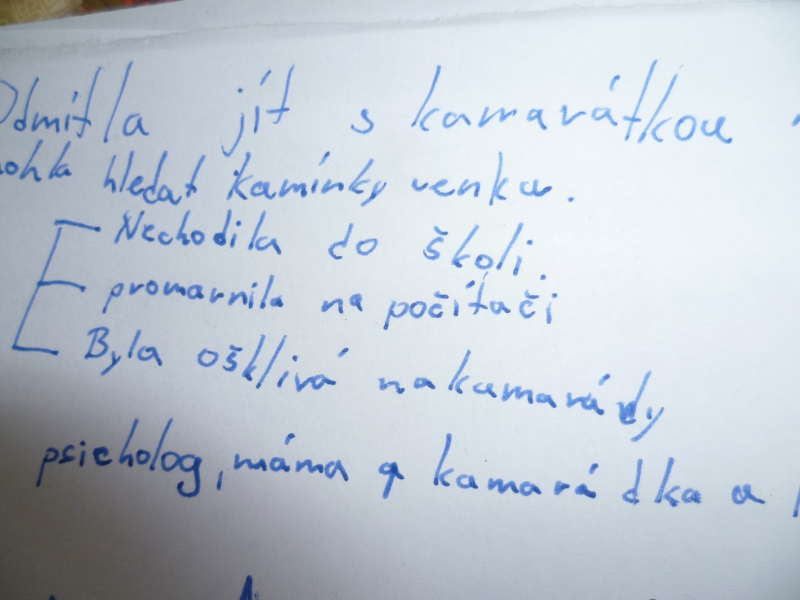 Odmítla jít s kamarátkou
mohla hledat kamínky venku.
Nechodila do školi.
promarnila na počítači
Byla ošklivá na kamarády
psicholog, máma a kamarádka a